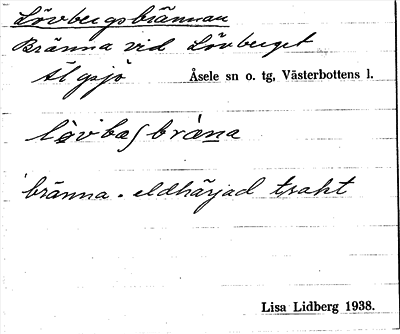 Lövbergsbrännan
Bränna vid Lövberget
Älgsjö Åsele sn o. tg, Västerbottens l.
bränna = eldhärjad trakt
Lisa Lidberg 1938.